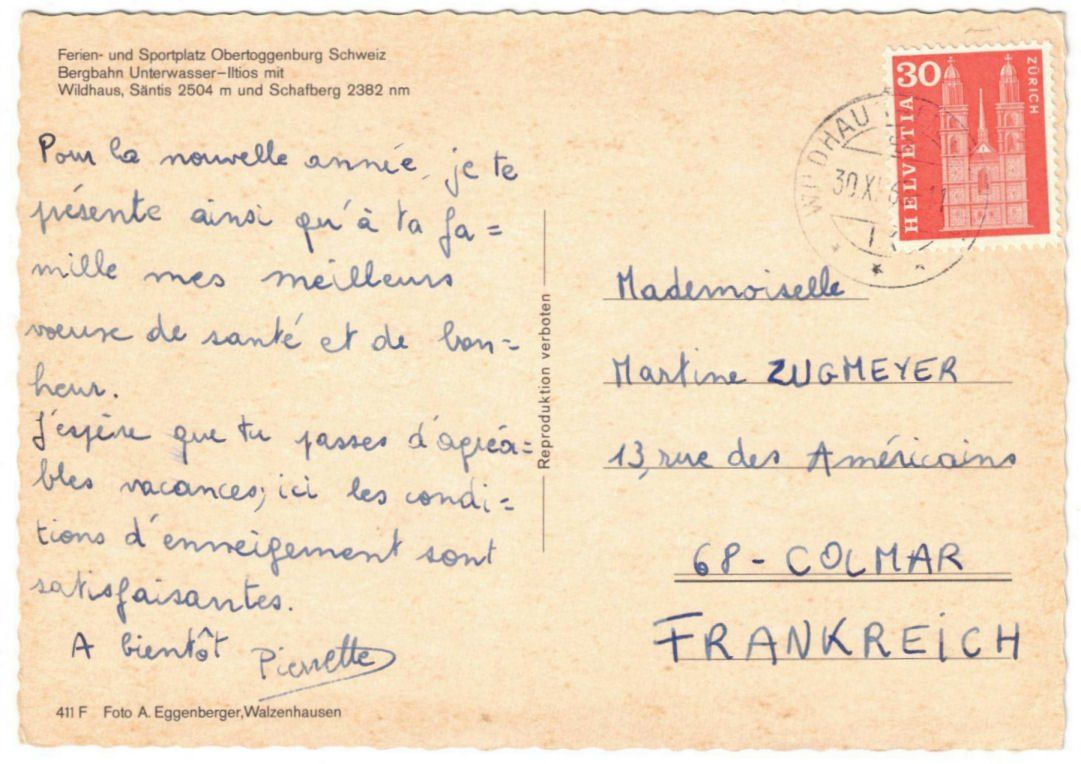 Ferien- und Sportplatz Obertoggenburg Schweiz
Bergbahn Unterwasser–Iltios mit
Wildhaus, Säntis 2504 m und Schafberg 2382 nm
Pour la nouvelle année, je te
présente ainsi qu'à ta fa=
mille mes meilleurs
voeux de santé et de bon=
heur.
J'espère que tu passes d'agréa=
bles vacances, ici les condi=
tions d'enneigement sont
satisfaisantes.
A bientôt Pierrette
411 F Foto A. Eggenberger, Walzenhausen
Reproduktion verboten
30
ZÜRICH
HELVETIA
WILDHAU
30.XI
Mademoiselle
Martine ZUGMEYER
13, rue des Américains
68 - COLMAR
FRANKREICH